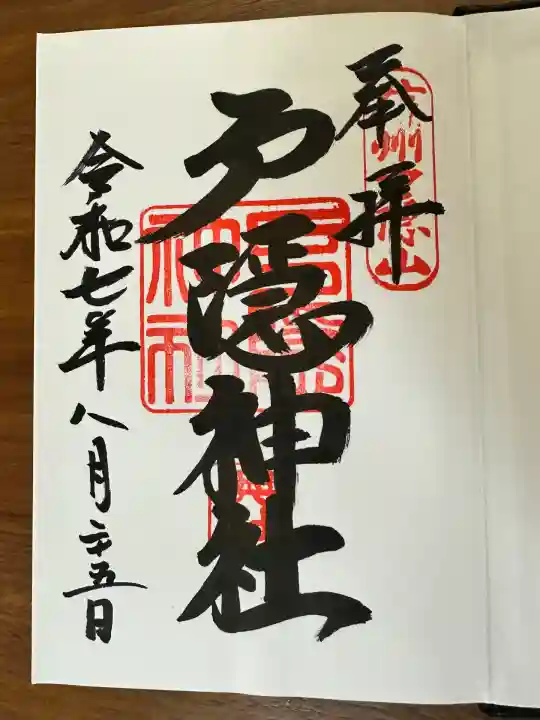 奉拝
信州戸隠山
戸隠神社
戸隠神社
令和七年八月二十五日